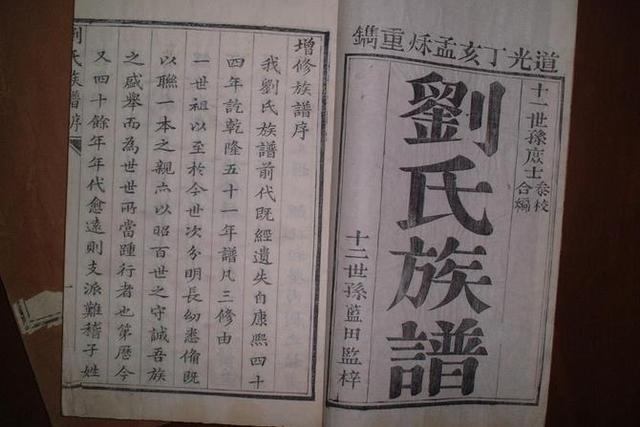 道光丁亥孟秌重鐫
十一世孫庻士
叅校
合編
劉氏族譜
十二世孫藍田監梓
增修族譜序
我劉氏族譜前代既經遺失自康熙四十
四年訖乾隆五十一年譜凡三修由
一世祖以至於今世次分明長幼悉偹既
以聯一本之親亦以昭百世之守誠吾族
之盛舉而為世世所當踵行者也第歷今
又四十餘年年代愈遠則支派難稽子姓
劉氏族譜序
一